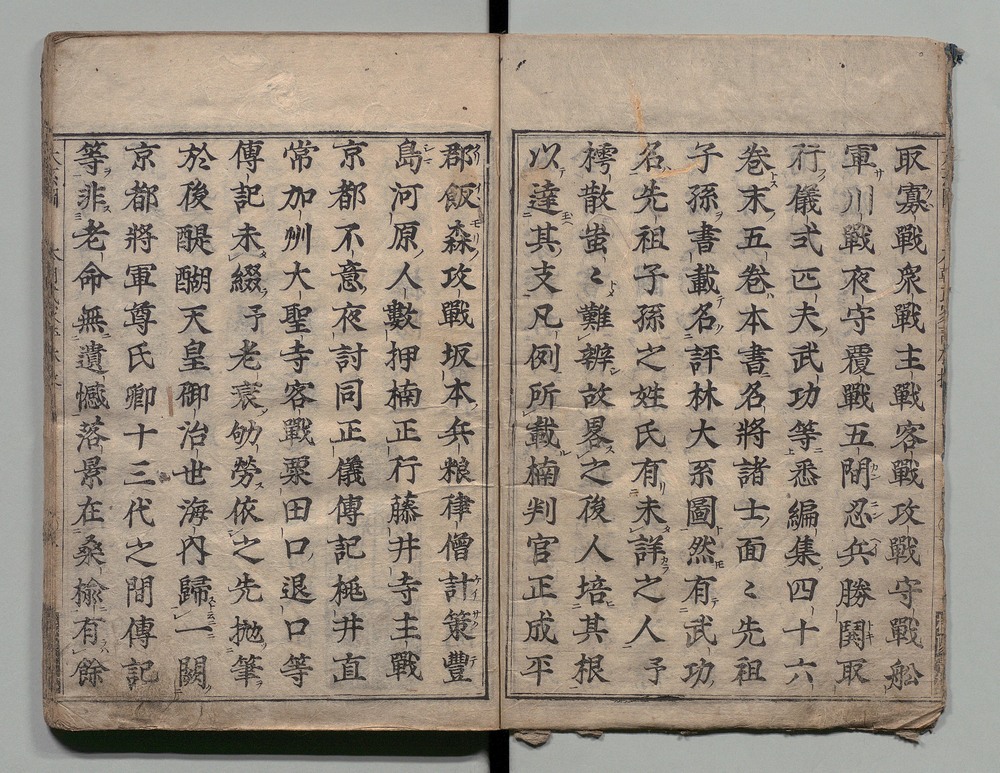 取寡戰衆戰主戰客戰攻戰守戰舩
軍川戰夜守覆戰五間忍兵勝鬨取
行儀弍匹夫武功等悉編集四十六
卷末五卷本書名將諸士面〻先祖
子孫書載名評林大系圖然有武功
名先祖子孫之姓氏有未詳之人予
樗散蚩〻難辨故畧之後人培其根
以達其支凡例所載楠判官正成平
郡飯森攻戰坂本兵粮律僧計策豐
島河原人數押楠正行藤井寺主戰
京都不意夜討同正儀傳記桃井直
常加州大聖寺客戰粟田口退口等
傳記未綴予老衰劬勞依之先抛筆
於後醍醐天皇御治世海內歸一闕
京都將軍尊氏卿十三代之間傳記
等非老命無遺憾落景在桑楡有餘